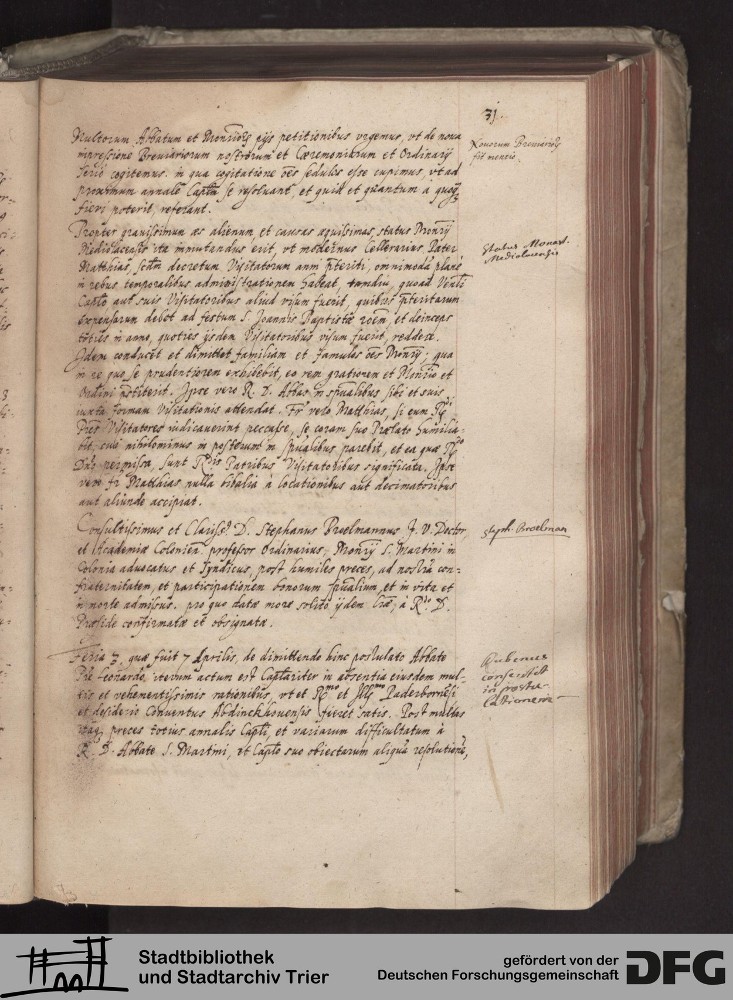 31.
Multorum Abbatum et Monrioꝝ pijs petitionibus vrgemur, vt de noua
impressione Breuiariorum nostrorum et Cæremoniarum et Ordinarij
serio cogitemus. in qua cogitatione oēs sedulis esse cupimus, vt ad
proximum annale Caplm se resoluant et quid et quantum a quoqꝫ
fieri poterit, referant.
Nouorum Breuiarioꝝ
fit mentio.
Propter grauissimum æs alienum et causas æquissimas, status Monrij
Mediolacensis ita immutandus erit, vt modernus Cellerarius Pater
Matthias, scdm decretum Visitatorum anni pteriti, omnimodā planè
in rebus temporalibus administrationem habeat, tamdiu, quoad Venli
Caplo aut suis Visitatoribus aliud visum fuerit, quibus pteritarum
expensarum debet ad festum S. Joannis Baptistæ roem, et deinceps
toties in anno, quoties ijsdem Visitatoribus visum fuerit, reddere.
Idem conducet et dimittet familiam et famulos oēs Monrij; qua
in re quo se prudentiorem exhibebit, eo rem gratiorem et Monrio et
Ordini pstiterit. Ipse vero R. D. Abbas in spualibus sibi et suis
iuxta formam Visitationis attendat. Fr vero Matthias, si eum Rdi
Pres Visitatores iudicauerint peccasse, se coram suo Prælato humilia-
bit, cui nihilominus in posterum in spualibus parebit, et ea quæ
Dns permissa, sunt Rdis Patribus Visitatoribus significata. Ipse
vero fr Matthias nulla bibalia à locationibus aut decimatoribus
aut aliunde accipiat.
Status Monast.
Mediolacensis
Consultissimus et Clariss. D. Stephanus Broelmannus J. V. Doctor,
et Academiæ Colonien. professor Ordinarius, Monrij S. Martini in
Colonia aduocatus et Syndicus, post humiles preces, ad nostrā con-
fraternitatem, et participationem bonorum spualium, et in vita et
in morte admissus. pro quo datæ more solito ijdem lræ, a Rdo D.
Præside confirmatæ et obsignatæ.
Steph. Broelman
Feria 3, quæ fuit 7 Aprilis, de dimittendo hinc postulato Abbate
Pre Leonardo, iterum actum est Caplariter in absentia eiusdem mul-
tis et vehementissimis rationibus, vt et Rmo et Illmo Paderbornēsi
et desiderio Conuentus Abdinckhouensis fieret satis. Post multas
itaqꝫ preces totius annalis Capli, et variarum difficultatum à
R. D. Abbate S. Martini, et Caplo suo obiectarum aliquā resolutionē,
Rubenus
consensit
in postu-
lationem
Stadtbibliothek
und Stadtarchiv Trier
gefördert von der
Deutschen Forschungsgemeinschaft
DFG